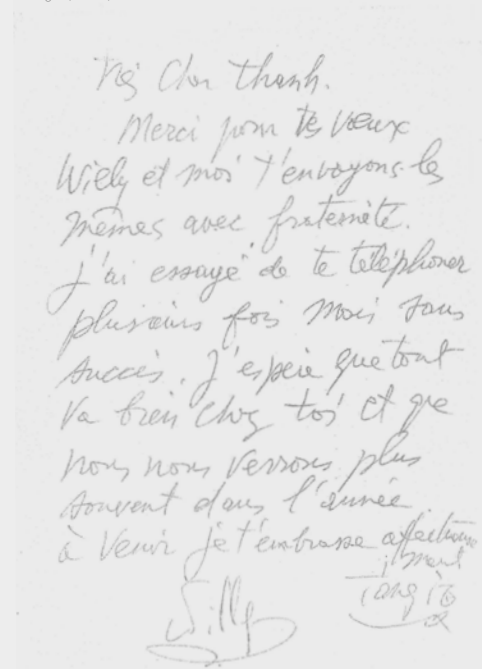 Très Cher Thanh.
Merci pour tes vœux
Wiely et moi t'envoyons les
mêmes avec fraternité.
j'ai essayé de te téléphoner
plusieurs fois mais sans
succès. J'espère que tout
va bien chez toi et que
nous nous verrons plus
souvent dans l'année
à venir je t'embrasse affectueuse
ment
Willy